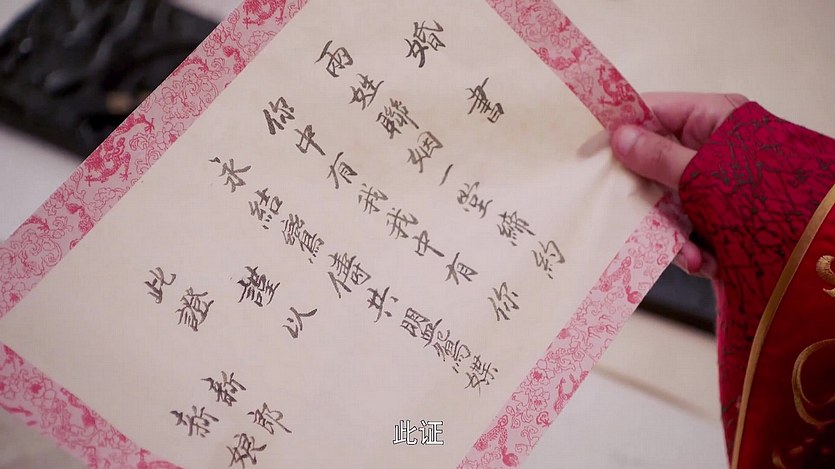 婚書
兩姓聯姻一堂締約
你中有我我中有你
永結鸞儔共盟鴛蝶
謹以
此證
新郎
新娘
此证